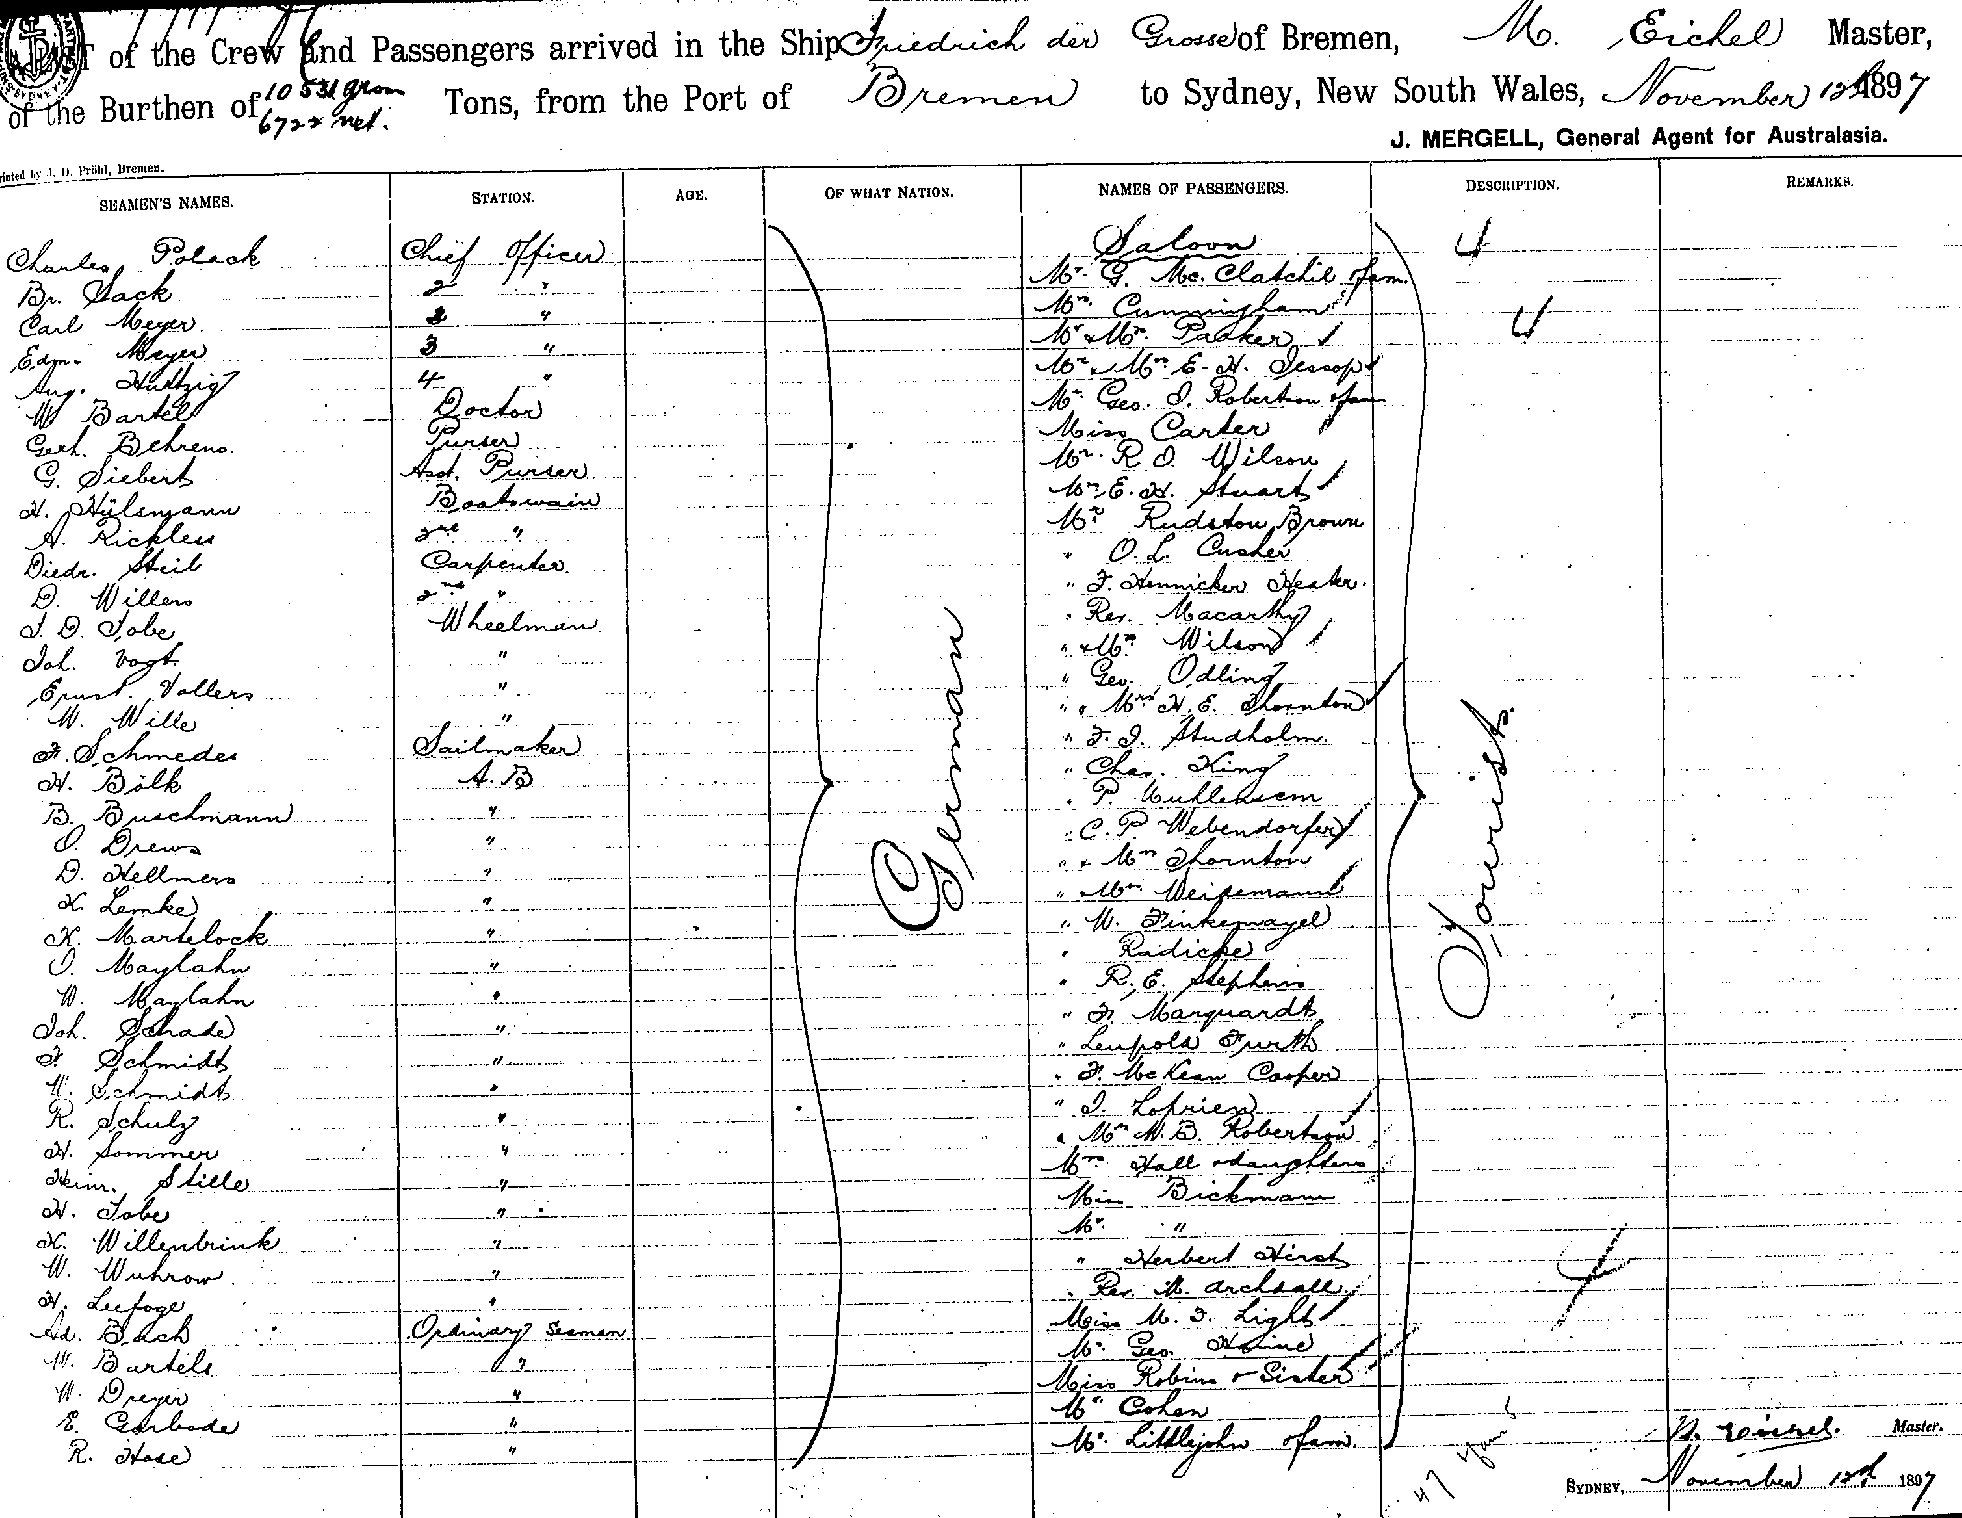 A LIST of the Crew and Passengers arrived in the Ship Friedrich der Grosse of Bremen, M. Eichel Master,
of the Burthen of 10531 gross 6722 net. Tons, from the Port of Bremen to Sydney, New South Wales, November 12th 1897
J. MERGELL, General Agent for Australasia.
Printed by J. D. Pröhl, Bremen.
SEAMEN'S NAMES. STATION. AGE. OF WHAT NATION. NAMES OF PASSENGERS. DESCRIPTION. REMARKS.
Charles Polack Chief Officer Saloon 4
Br. Sack 2 " Mr. G. Mc. Clatchie & fam.
Carl Meyer 2 " Mrs. Cunningham 4
Edm. Meyer 3 " Mr & Mrs. Parker
Aug. Huttzig 4 " Mr. & Mrs E. H. Jessop
W Bartel Doctor Mr. Geo. I. Robertson & fam
Gerh. Behrens. Purser Miss Carter
G. Siebert Asst. Purser Mr. R. D. Wilson
H. Hülsmann Boatswain Mrs. E. H. Stuart
A. Ricklen 2nd " Mr. Rudston Brown
Diedr. Steil Carpenter. " O. L. Cusher
D. Willers 2nd " " F. Hennicker Heaton.
J. D. Tobe Wheelman " Rev. Macarthy
Joh. Vogt. " " & Mrs Wilson
Ernst. Vollers " " Geo. Odling
W. Wille " " " Mrs H. E. Thornton
F. Schmedes Sailmaker " F. J. Studholm.
H. Bölk A. B " Chas. King
B. Buschmann " " P.
O. Drews " " C. P. Webendorfer
D. Hellmers " " & Mrs Thornton
K. Lemke " " & Mrs Weisemann
K. Martelock " " W. Finkemagel
O. Maylahn " " Radicke
W. Maylahn " " R. E. Stephens
Joh. Schade " " F. Marquardt
F. Schmidt " " Leupold Furth
W. Schmidt " " F. McKean Cooper
R. Schulz " " J. Loprien
H. Sommer " " Mrs W. B. Robertson
Heinr. Stille " Mrs. Hall & daughters
H. Tobe " Miss Bickmann
K. Willenbrink " Mr. "
W. Wuhrow " " Herbert Hirst
H. Leefoge " " Rev. M. Archdall
Ad. Bach Ordinary Seaman Miss M. F. Light
W. Bartels " Mr. Geo. Heine
W. Dreyer " Miss Robins & Sister
E. Garbade " Mr Cohen
R. Hose " Mr. Littlejohn & fam.
German
Tourists.
47
M. Eichel. Master.
SYDNEY, November 12th 1897